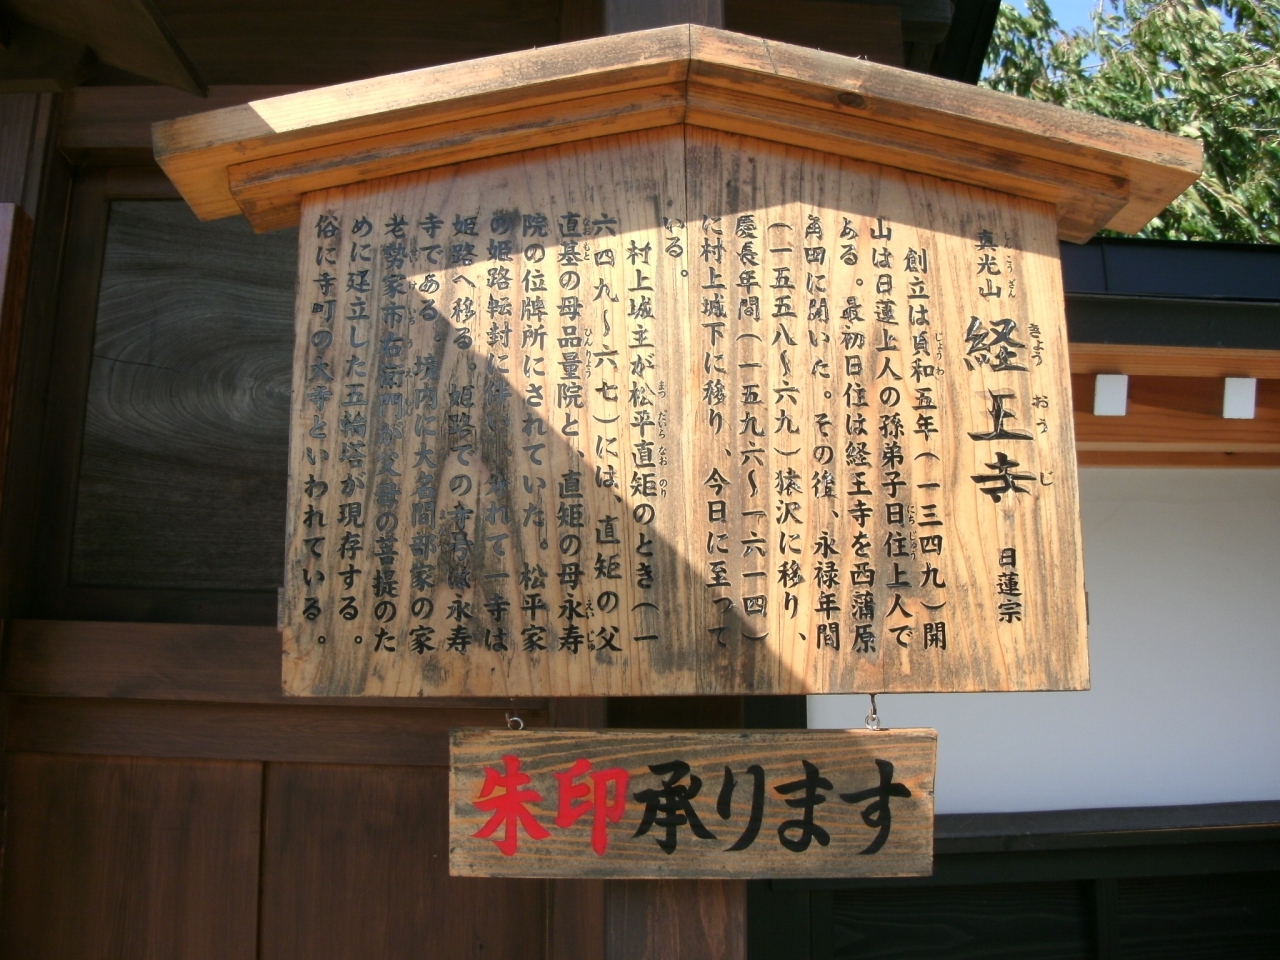 真光山 経王寺 日蓮宗
創立は貞和五年(一三四九)開
山は日蓮上人の孫弟子日住上人で
ある。最初日住は経王寺を西蒲原
角田に開いた。その後、永禄年間
(一五五八〜六九)猿沢に移り、
慶長年間(一五九六〜一六一四)
に村上城下に移り、今日に至って
いる。
村上城主が松平直矩のとき(一
六四九〜六七)には、直矩の父
直基の母品量院と、直矩の母永寿
院の位牌所にされていた。松平家
の姫路転封に伴い分れて一寺は
姫路へ移る。姫路での寺号は永寿
寺である。境内に大名間部家の家
老勢家市右衛門が父母の菩提のた
めに建立した五輪塔が現存する。
俗に寺町の大寺といわれている。
朱印承ります